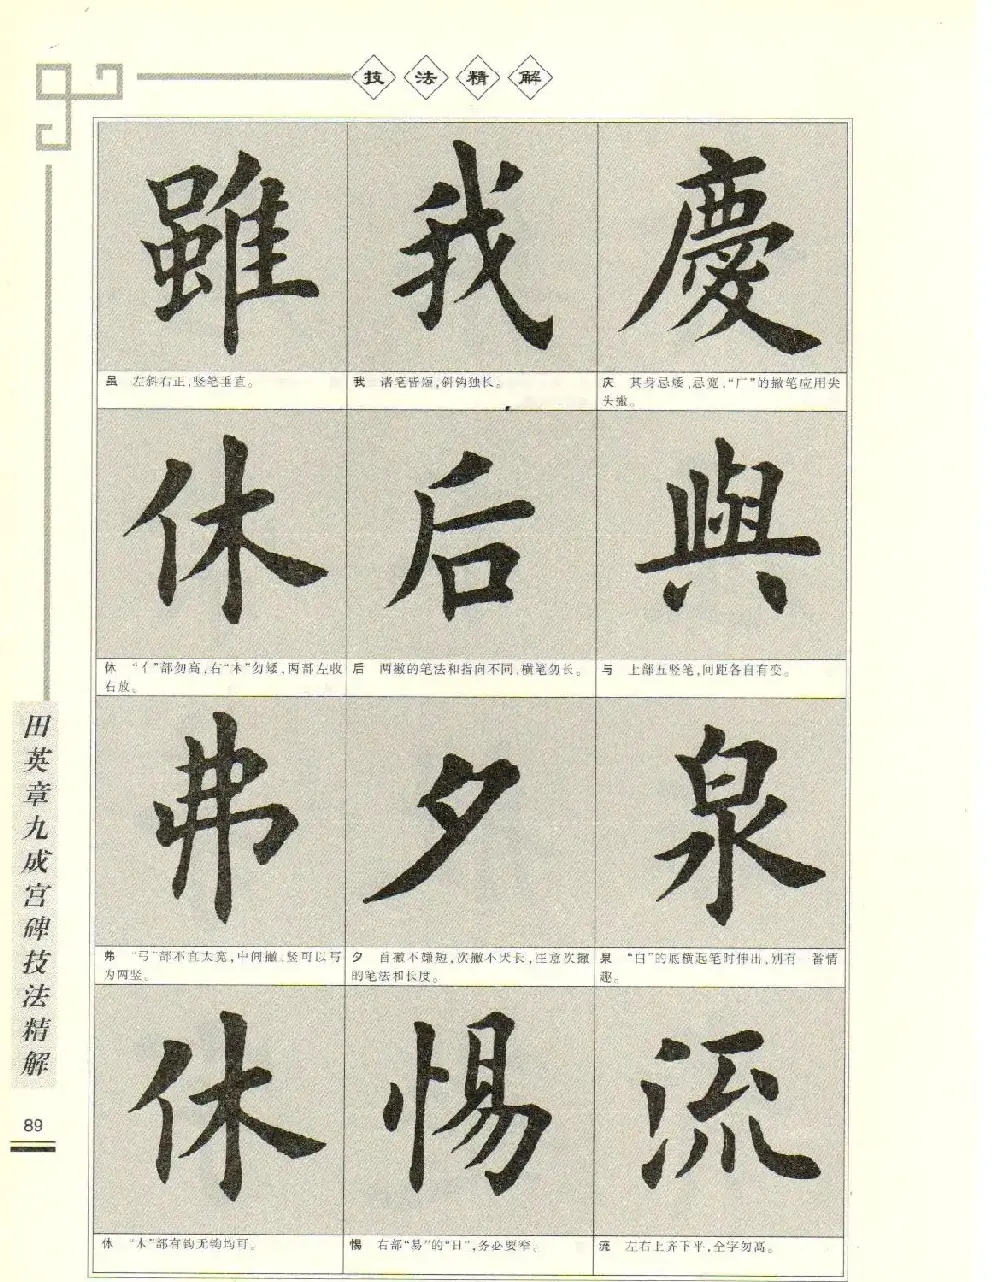 技法精解
雖 我 慶
虽 左斜右正,竖笔垂直。
我 诸笔皆短,斜钩独长。
庆 其身忌矮,忌宽,“厂”的撇笔应用尖
头撇。
休 后 與
休 “亻”部勿高,右“木”勿矮,两部左收
右放。
后 两撇的笔法和指向不同,横笔勿长。
与 上部五竖笔,间距各自有变。
弗 夕 泉
弗 “弓”部不宜太宽,中间撇、竖可以写
为两竖。
夕 首撇不嫌短,次撇不厌长,注意次撇
的笔法和长度。
泉 “白”的底横起笔时伸出,别有一番情
趣。
休 惕 流
休 “木”部有钩无钩均可。
惕 右部“易”的“日”,务必要窄。
流 左右上齐下平,全字勿高。
田英章九成宫碑技法精解
89